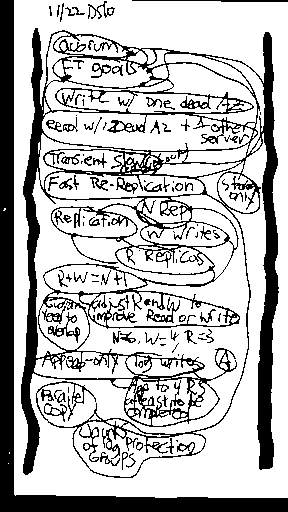 11/22 DS10
Quorum
FT goals
Write w/ one dead AZ
Read w/ 1 Dead AZ + 1 other
server
Transient Slow
Fast Re-Replication
Storage
only
Replication
N Rep
W writes
R Replicas
R+W=N+1
need to
overlap
adjust R and W to
improve Read or Write
N=6, W=4, R=3
Append-only
log writes
A
Parallel
Copy
completed
Chunks
of log Protection
Groups